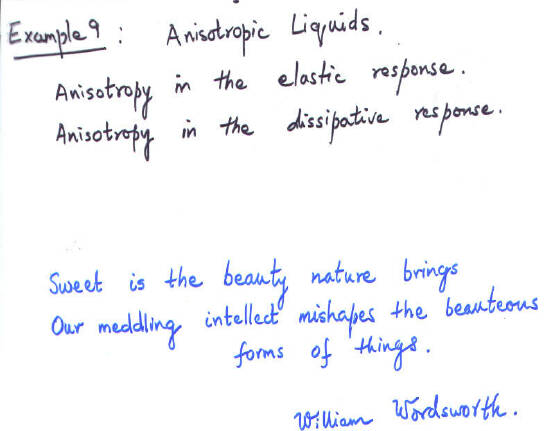 Example 9 : Anisotropic Liquids.
Anisotropy in the elastic response.
Anisotropy in the dissipative response.
Sweet is the beauty nature brings
Our meddling intellect mishapes the beauteous
forms of things.
William Wordsworth.